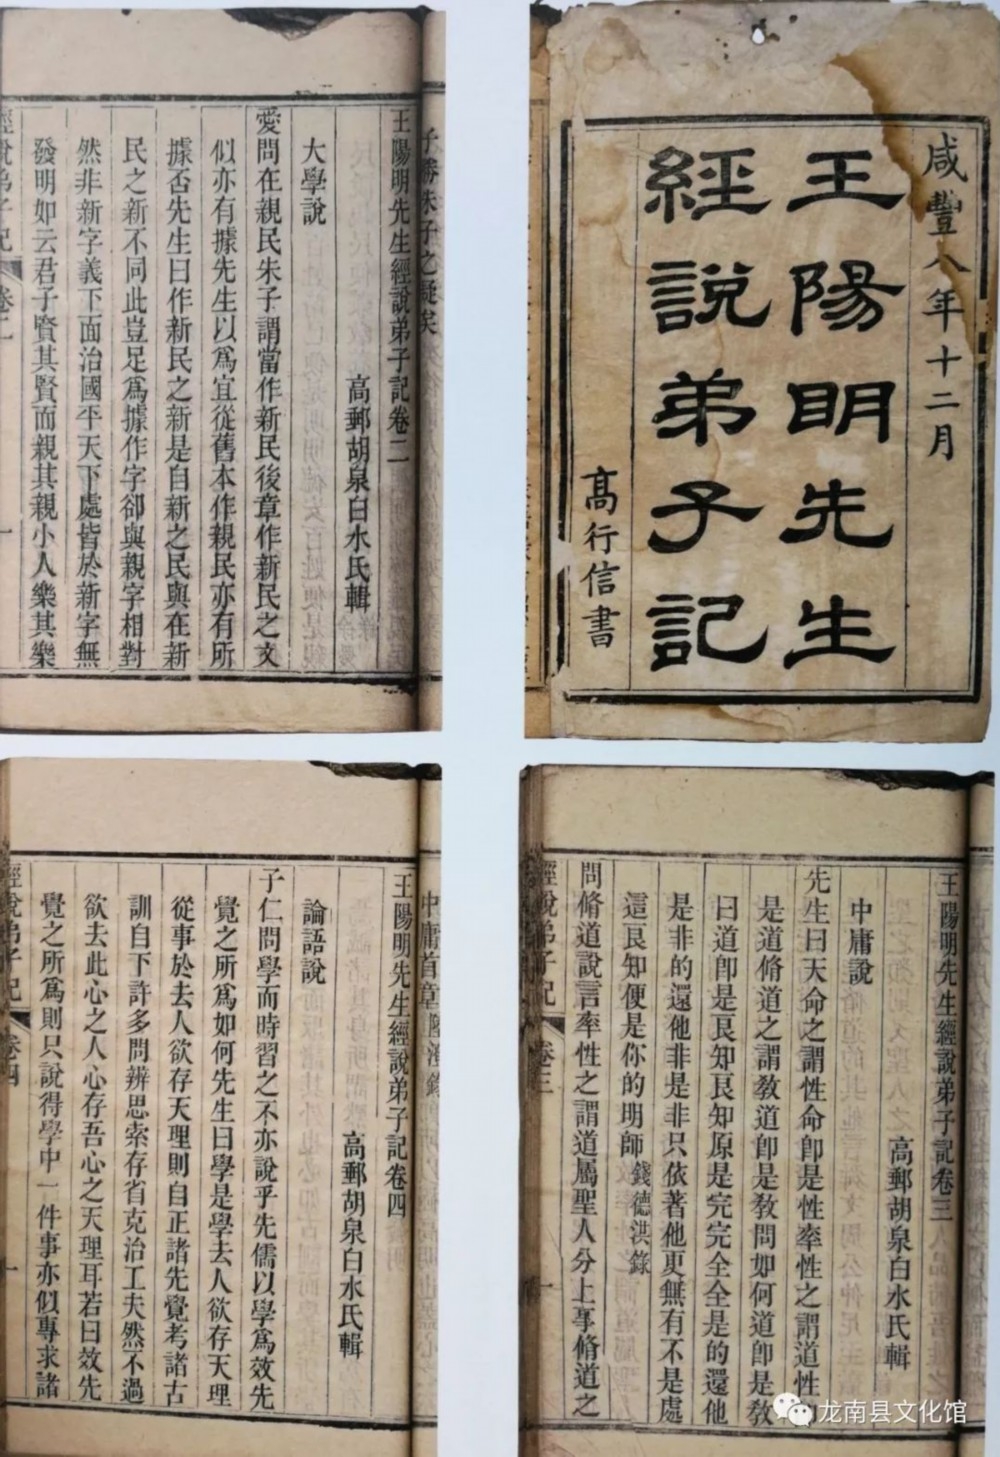 咸豐八年十二月
王陽明先生
經說弟子記
高行信書
子勝朱子之疑矣
王陽明先生經說弟子記卷二
高郵胡泉白水氏輯
大學說
愛問在親民朱子謂當作新民後章作新民之文
似亦有據先生以爲宜從舊本作親民亦有所
據否先生曰作新民之新是自新之民與在新
民之新不同此豈足爲據作字卻與親字相對
然非新字義下面治國平天下處皆於新字無
發明如云君子賢其賢而親其親小人樂其樂
經說弟子記 卷二 一
王陽明先生經說弟子記卷三
高郵胡泉白水氏輯
中庸說
先生曰天命之謂性命卽是性率性之謂道性卽
是道脩道之謂教道卽是教問如何道卽是教
曰道卽是良知良知原是完完全全是的還他
是非的還他非是非只依著他更無有不是處
這良知便是你的明師 錢德洪錄
問脩道說言率性之謂道屬聖人分上事脩道之
經說弟子記 卷三 一
中庸首章陸澄錄
王陽明先生經說弟子記卷四
高郵胡泉白水氏輯
論語說
子仁問學而時習之不亦說乎先儒以學爲效先
覺之所爲如何先生曰學是學去人欲存天理
從事於去人欲存天理則自正諸先覺考諸古
訓自下許多問辨思索存省克治工夫然不過
欲去此心之人心存吾心之天理耳若曰效先
覺之所爲則只說得學中一件事亦似專求諸
經說弟子記 卷四 一
龙南县文化馆